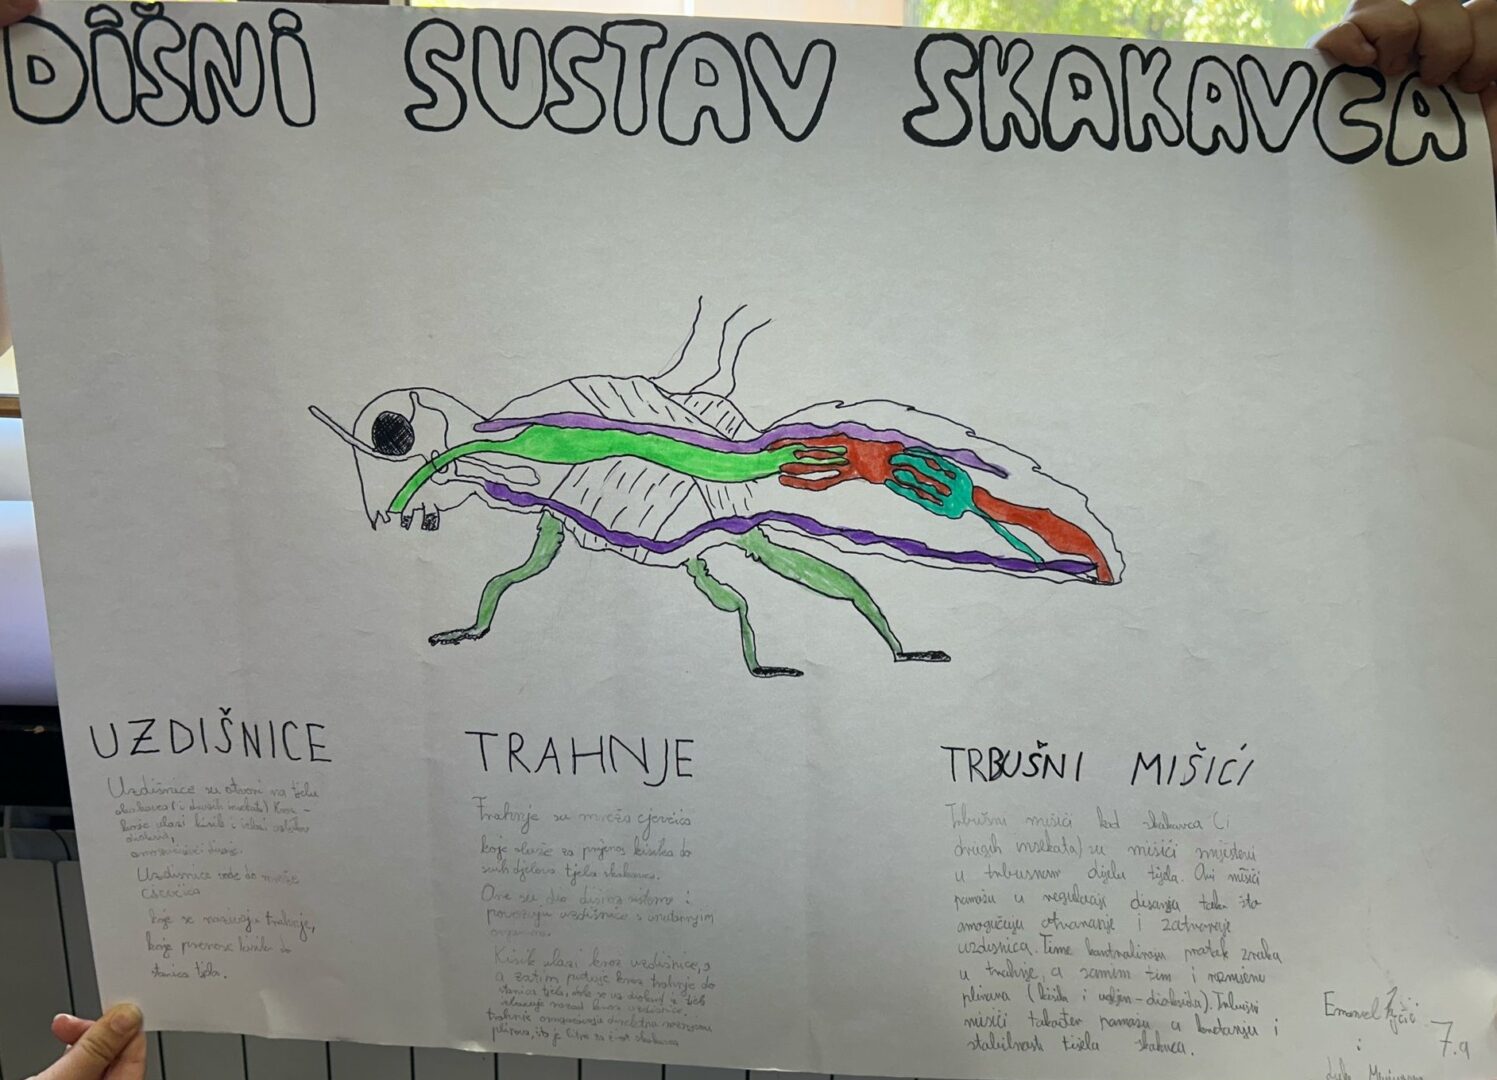 DIŠNI SUSTAV SKAKAVCA
UZDIŠNICE
Uzdišnice su otvori na tjelu
skakavca (i drugih insekata) Kroz -
koje ulazi kisik i izlazi ugljikov
dioksid,
omogućujući disanje.
Uzdisnice vode do mreže
cjevčica
koje se nazivaju trahnje,
koje prenose kisik do
stanica tijela.
TRAHNJE
Trahnje su mreža cjevčica
koje služe za prijenos kisika do
svih djelova tjela skakavca.
One su dio dišnog sistema i
povezuju uzdišnice s unutarnjim
organima.
Kisik ulazi kroz uzdisnice,
a zatim putuje kroz trahnje do
stanica tjela, dok se
nazad kroz uzdisnice.
trahnje omogućavaju direktnu razmjenu
plinova, što je bitno za život skakavca
TRBUŠNI MIŠIĆI
Trbušni mišići kod skakavca (i
drugih insekata) su mišići smješteni
u trbusnom dijelu tijela. Ovi mišići
pomažu u regulaciji disanja tako što
omogućuju otvaranje i zatvaranje
uzdisnica. Time kontroliraju protok zraka
u trahnje, a samim tim i razmjenu
plinova (kisika i ugljen-dioksida). Trbusni
mišići također pomažu u kretanju i
stabilnosti tijela skakavca.
Emanuel
i
7.a